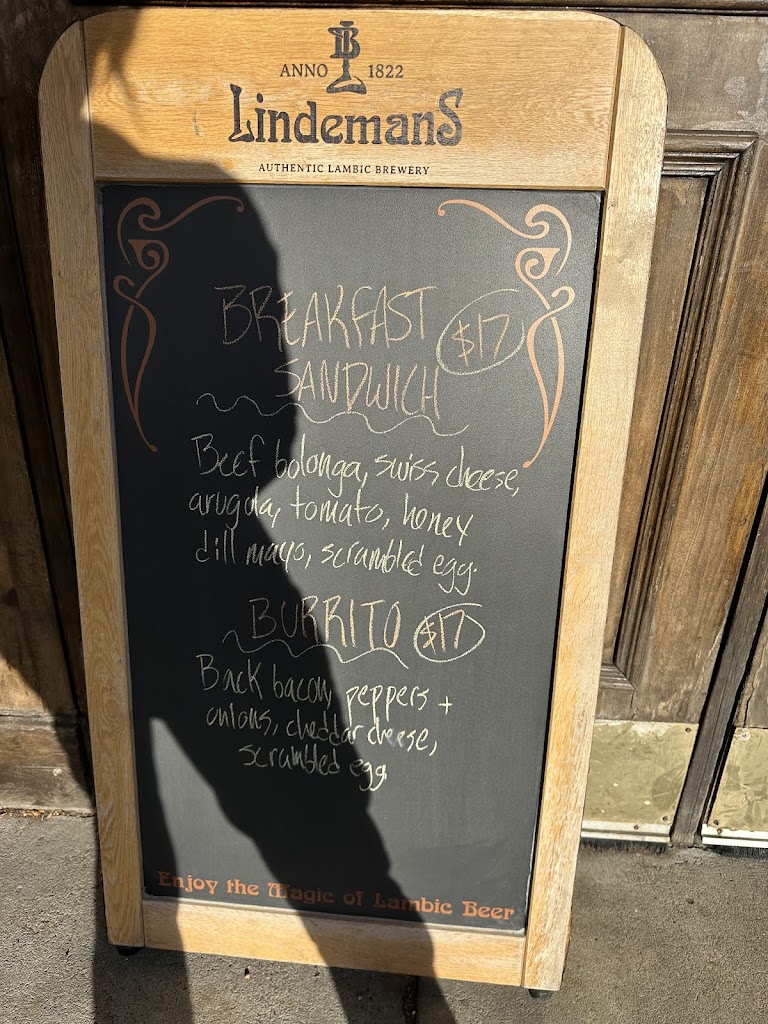 ANNO B 1822
LindemanS
AUTHENTIC LAMBIC BREWERY
BREAKFAST $17
SANDWICH
Beef bolonga, swiss cheese,
arugula, tomato, honey
dill mayo, scrambled egg.
BURRITO $17
Back bacon, peppers +
onions, cheddar cheese,
scrambled egg
Enjoy the Magic of Lambic Beer